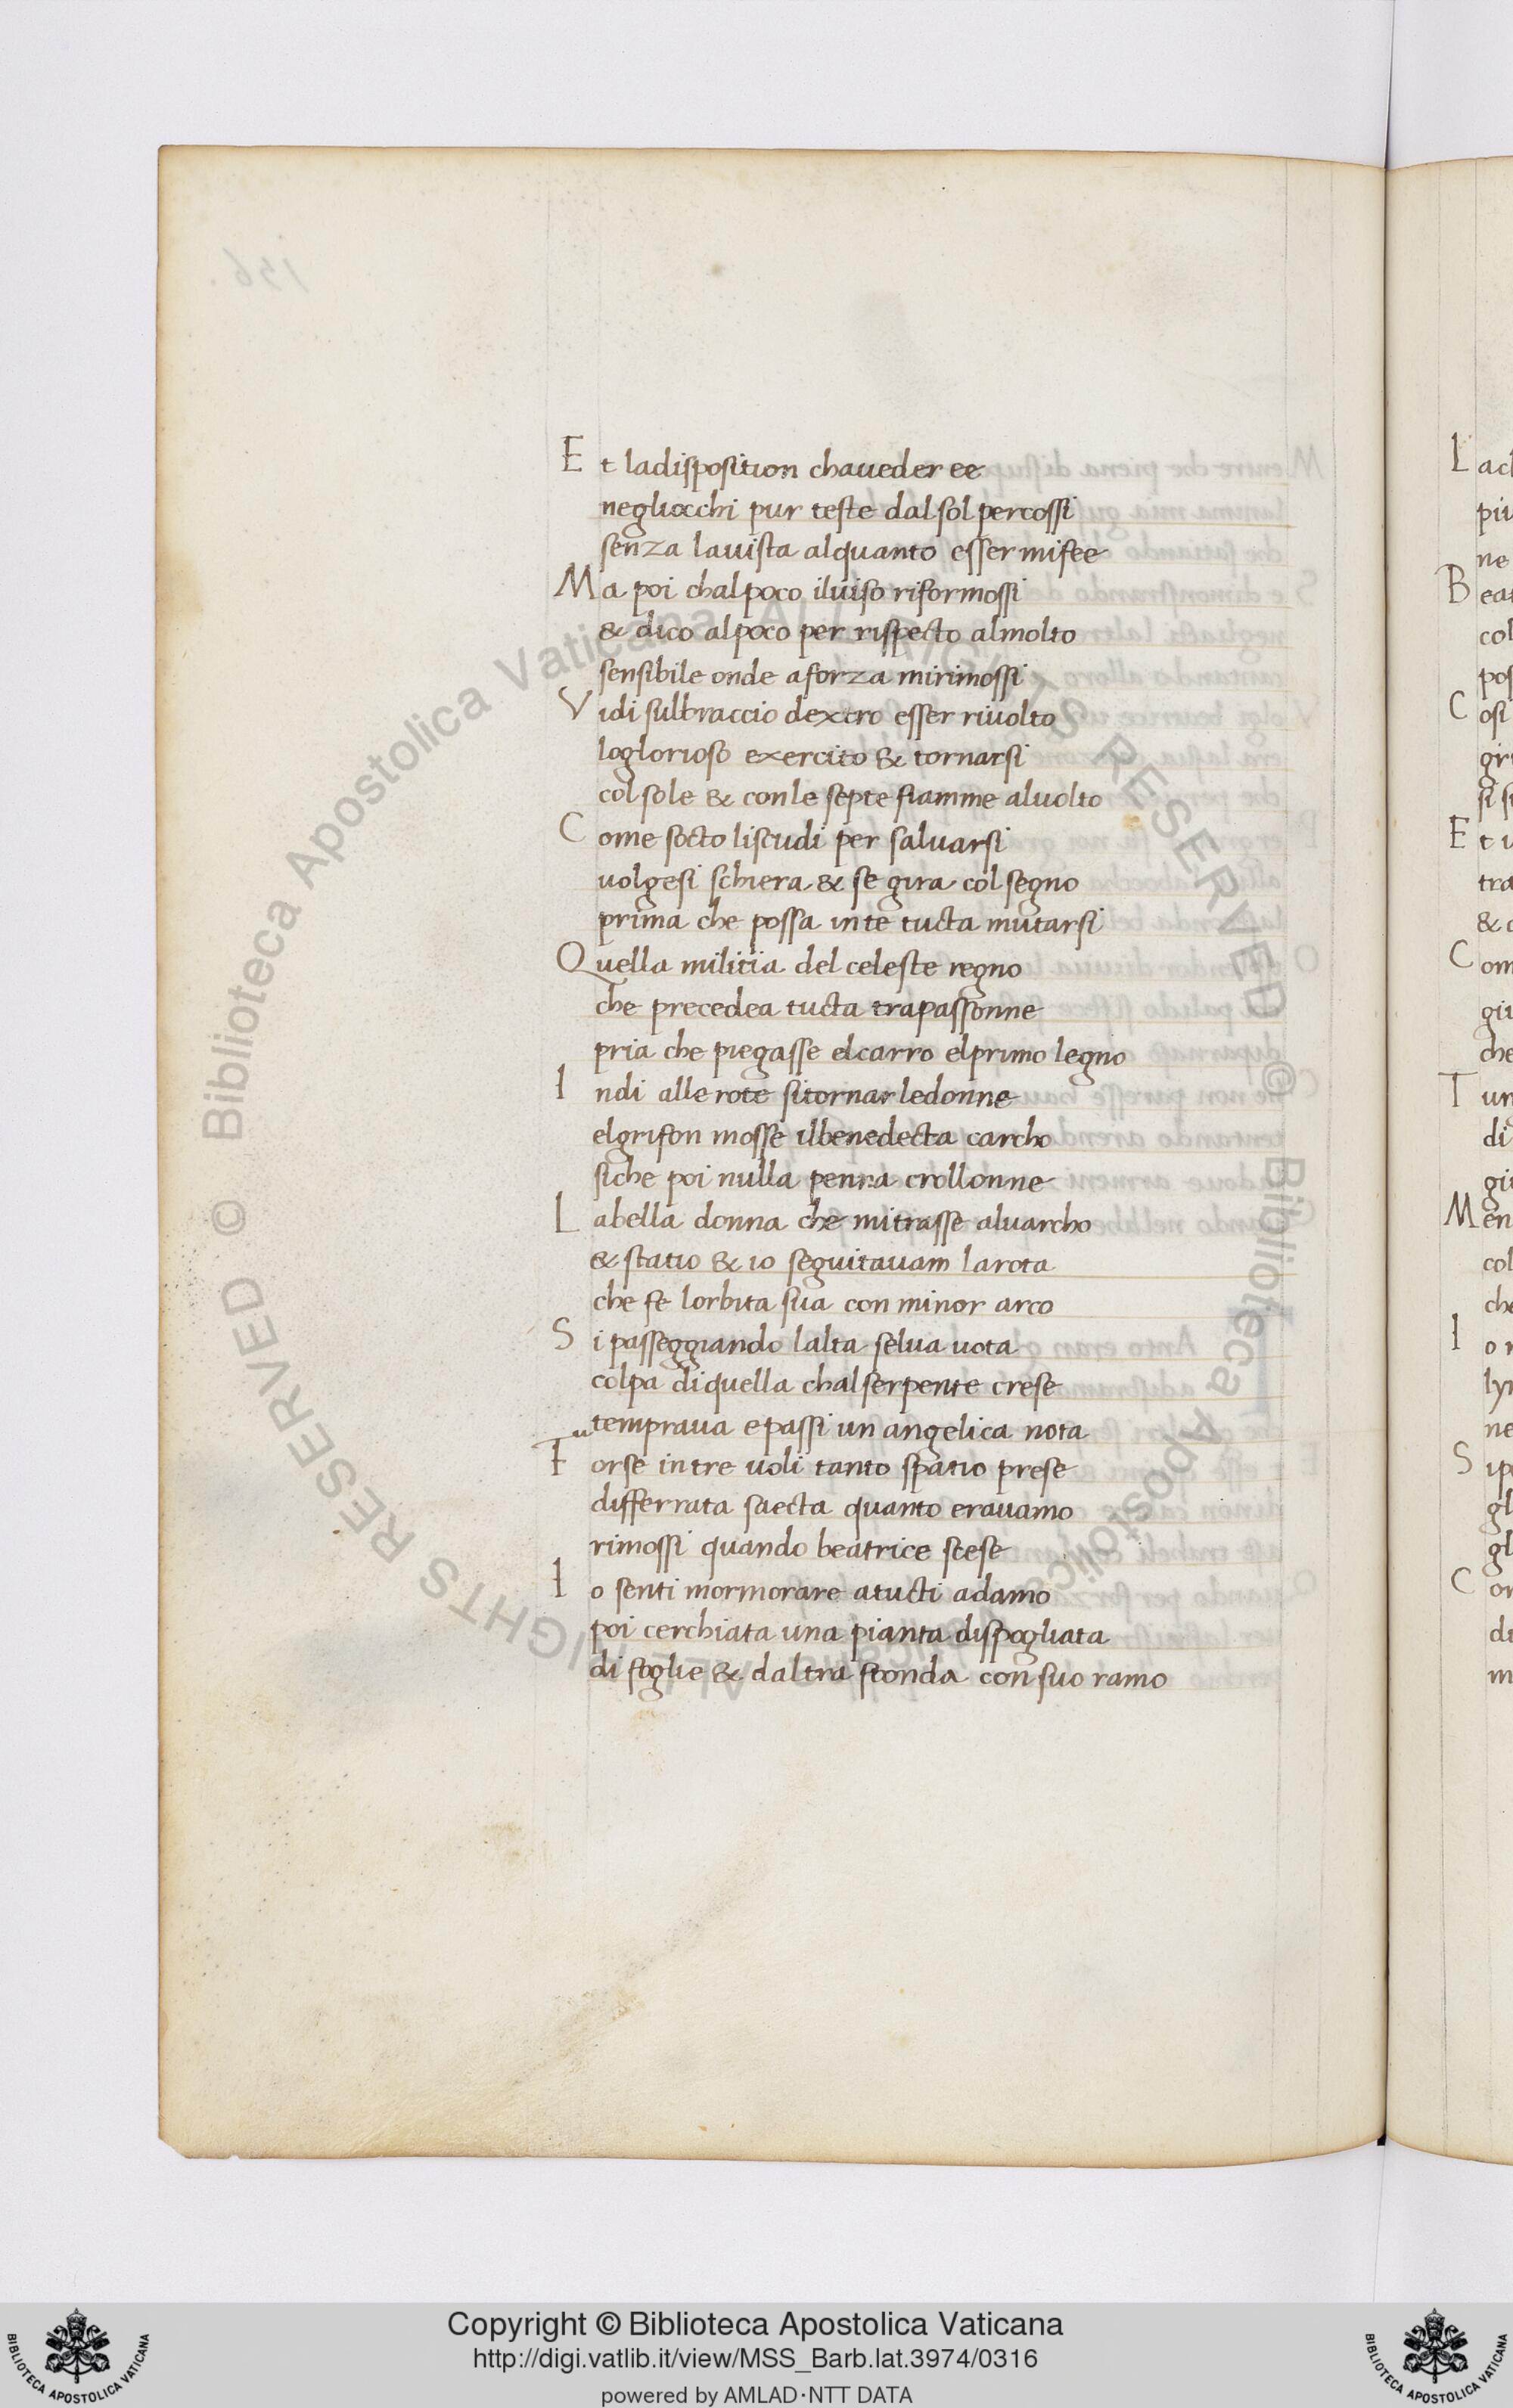 Et ladisposition chaueder ee
negliocchi pur teste dalsol percossi
senza lauista alquanto esser mifee
Ma poi chalpoco iluiso riformossi
& dico alpoco per rispecto almolto
sensibile onde aforza mirimossi
Vidi sulbraccio dextro esser riuolto
loglorioso exercito & tornarsi
colsole & conle septe fiamme aluolto
Come socto liscudi per saluarsi
uolgesi schiera & se gira col segno
prima che possa inte tucta mutarsi
Quella militia del celeste regno
che precedea tucta trapassonne
pria che piegasse elcarro elprimo legno
Indi alle rote sitornar ledonne
elgrifon mosse ilbenedecta carcho
siche poi nulla penna crollonne
Labella donna che mitrasse aluarcho
& statio & io seguitauam larota
che fe lorbita sua con minor arco
Si passeggiando lalta selua uota
colpa diquella chalserpente crese
temprava epassi un angelica nota
Forse intre uoli tanto spatio prese
differrata saecta quanto erauamo
rimossi quando beatrice scese
Io senti mormorare atucti adamo
poi cerchiata una pianta dispogliata
di foglie & daltra fronda con suo ramo
Copyright © Biblioteca Apostolica Vaticana
http://digi.vatlib.it/view/MSS_Barb.lat.3974/0316
powered by AMLAD·NTT DATA